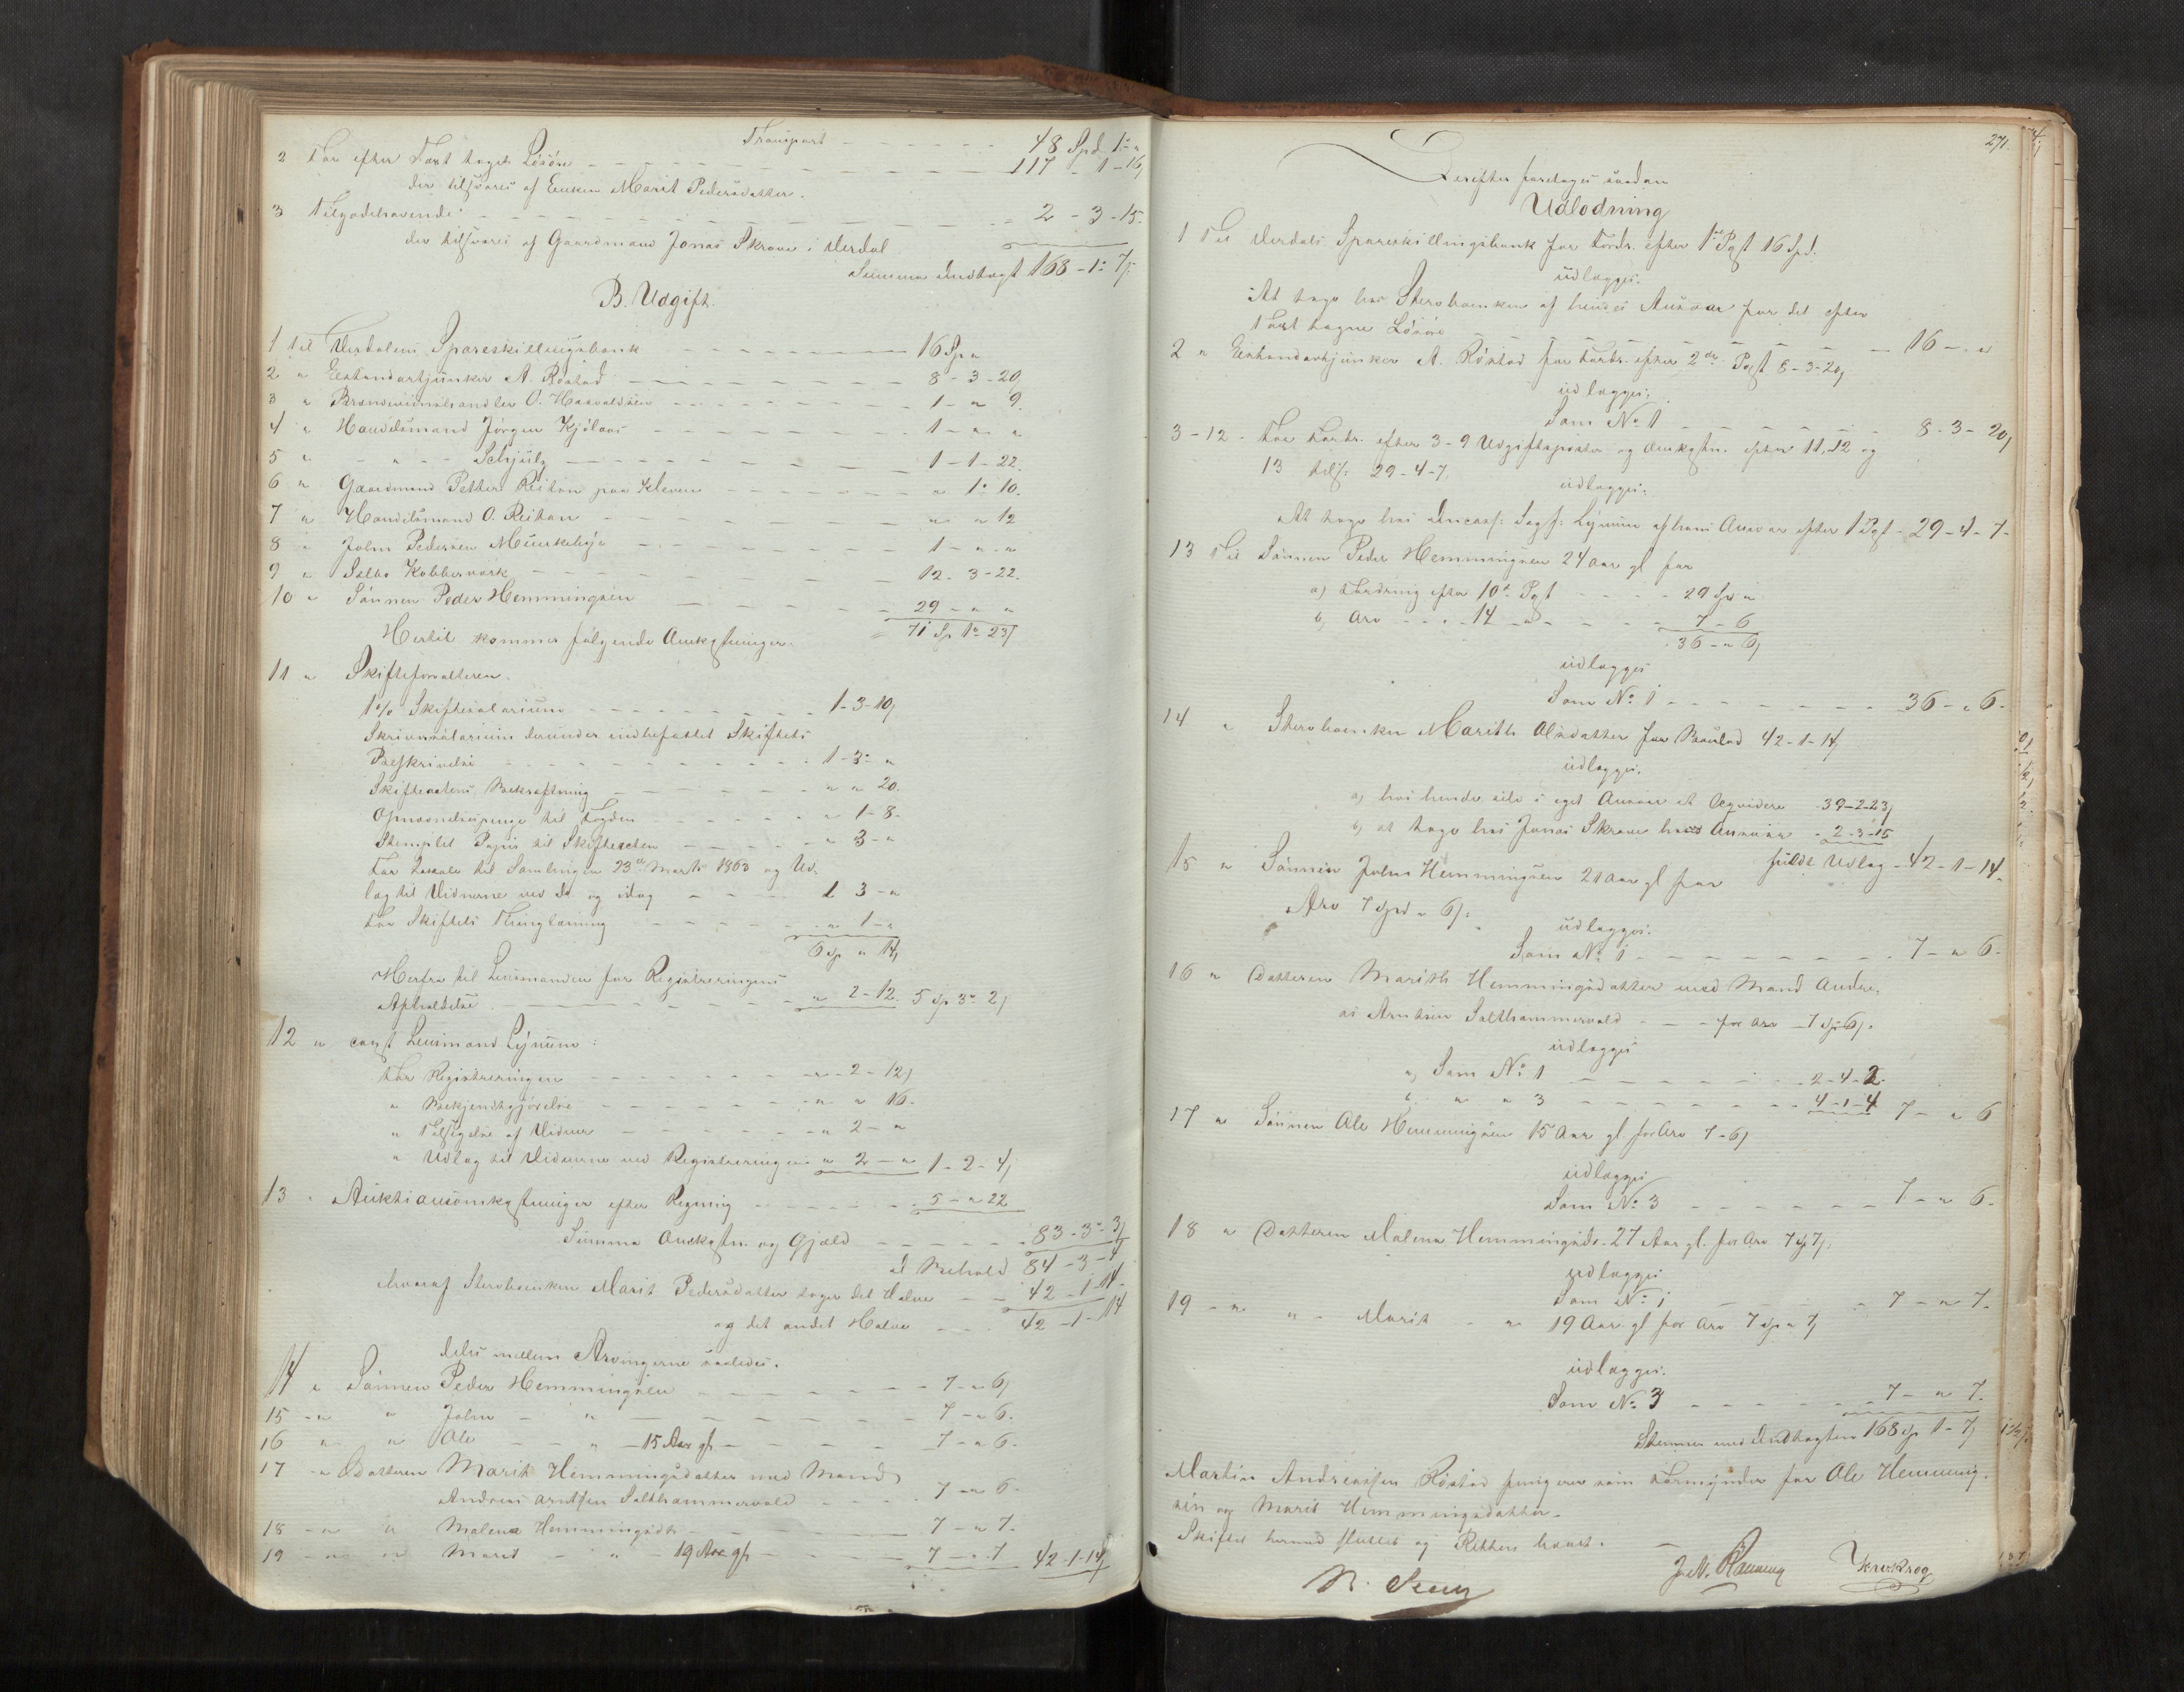 Transport 48 Spd 1 - "
2 For efter Taxt tagen Løsøre 117 - 1 - 16
der tilsvares af Enken Marit Pedersdatter.
3 Tilgodehavende: 2 - 3 - 15.
der tilsvares af Gaardmand Jonas Skrove i Verdal
Summa Indtægt 168 - 1 - 7
B. Udgift.
1 Til Verdalens Spareskillingsbank 16 Sp "
2 " Eskandartjunker A. Røstad 8 - 3 - 20
3 " Brændeviinshandler O. Haavaldsen 1 - " 9.
4 " Handelsmand Jørgen Kjølaas 1 - " "
5 " - " - Schjulz 1 - 1 - 22.
6 " Gaardmand Petter Reitan paa Kleven " 1 - 10.
7 " Handelsmand O. Reitan " " 12
8 " John Pedersen Munkebye 1 - " - "
9 " Selbo Kobberværk 12 - 3 - 22.
10 " Sønnen Peder Hemmingsen 29 - " "
71 Sp 1 - 23
Hertil kommer følgende Omkostninger.
11 " Skifteforvalteren.
1% Skiftesalarium 1 - 3 - 10
Skriversalarium derunder indbefattet Skiftets
Beskrivelse 1 - 3 - "
Skifteactens Bekræftning " " 20.
Opnævnelsespenge til Fogden " 1 - 8 -
Stemplet Papir til Skifteacten " 3 - "
For Locale til Samlingen 23de Marts 1863 og Ud-
læg til Vidnerne ved den og idag 1 3 - "
For Skiftets Thinglæsning " 1 - "
6 Sp " 14
Herfra til Lensmanden for Registreringens
Afholdelse " 2 - 12. 5 Sp 3 - 2
12 " const Lensmand Lynum:
For Registreringen " - 2 - 12
" Bekjendtgjørelse " " 16.
" Tilsigelse af Vidner " 2 - "
" Udlæg til Vidnerne ved Registreringen " 2 - " 1 - 2 - 4
13 " Auktionsomkostninger efter Regning 5 - " 22
Summa Omkostn. og Gjæld 83 - 3 - 3
et Behold 84 - 3 - 4
hvoraf Sterboenken Marit Pedersdatter tager det Halve 42 - 1 - 14.
og det andet Halve 42 - 1 - 14
deles mellem Arvingerne saaledes.
14 " Sønnen Peder Hemmingsen 7 - " 6
15 - " " John - " 7 - " 6.
16 " " Ole - " - 15 Aar gl. 7 - " 6.
17 - " Datteren Marit Hemmingsdatter med Mand
Andreas Arntsen Salthammervald 7 - " 6.
18 - " " Malena Hemmingsdtr 7 - " 7.
19 - " " Marit - " - 19 Aar gl. 7 - " 7 42 - 1 - 14
271.
Derefter foretoges saadan
Udlodning
1 Til Verdals Spareskillingsbank for Fordr. efter 1te Post 16 Spd.
udlægges:
At tage hos Sterboenken af hendes Ansvar for det efter
Taxt tagne Løsøre 16 - " "
2 " Eskandartjunker A. Røstad for Fordr. efter 2den Post 8 - 3 - 20
udlægges:
Som No 1 8 - 3 - 20
3-12 - For Fordr. efter 3-9 Udgiftsposter og Omkostn. efter 11, 12 og
13 tils: 29 - 4 - 7.
udlægges:
At tage hos Incass: Sagf: Lynum af hans Ansvar efter 1 Post - 29 - 4 - 7 -
13 Til Sønnen Peder Hemmingsen 24 Aar gl for
a) Fordring efter 10de Post 29 Sp "
b) Arv 14 - " 7 - 6
36 - " 6
udlægges
Som No 1 36 - " 6 -
14 " Sterboenken Marith Olsdatter for Boeslod 42 - 1 - 14
udlægges:
a) hos hende selv i eget Ansvar at liqvidere - 39 - 2 - 23
b) at tage hos Jonas Skrove hans Ansvar 2 - 3 - 15
fuldt Udlæg - 42 - 1 - 14.
15 " Sønnen John Hemmingsen 21 Aar gl for
Arv 7 Spd " 6:
udlægges:
Som No 1 7 - " 6 -
16 " Datteren Marith Hemmingsdatter med Mand Andre-
as Arntsen Salthammervald - for Arv 7 Sp 6.
udlægges
a) Som No 1 2 - 4 - 2
b. " " 3 4 - 1 - 4 7 - " 6
17 " Sønnen Ole Hemmingsen 15 Aar gl for Arv 7 - 6
udlægges
Som No 3 7 - " 6 -
18 " Datteren Malena Hemmingsdr. 27 Aar gl. for Arv 7 Sp 7:
udlægges
Som No 1 7 - " 7.
19 - " " - Marit - " 19 Aar gl for Arv 7 Sp " 7
udlægges:
Som No 3 7 - " 7.
Stemmer med Indtægten 168 Sp 1 - 7
Martin Andreassen Røstad fungerer som Formynder for Ole Hemming-
sen og Marit Hemmingsdatter.
Skiftet hermed sluttet og Retten hævet.
J. N. Rønning